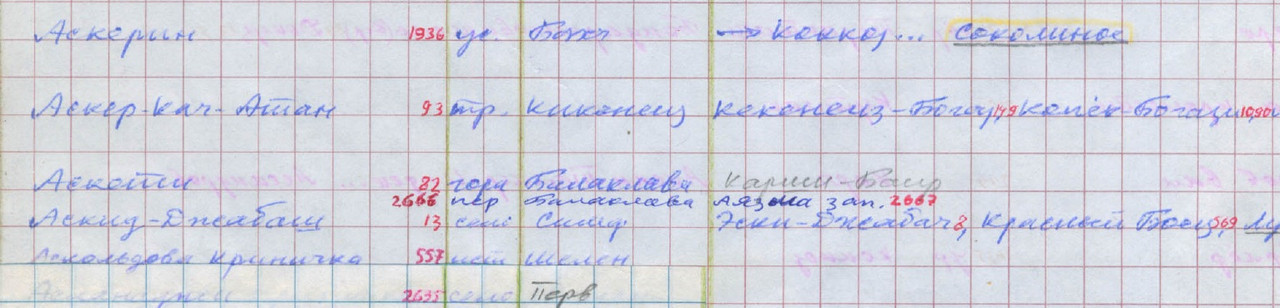 Аскерин 1936 ус. Бахч → Коккоз... Соколиное
Аскер-Кач-Атан 93 тр. Кикенеиз Кекенеиз-Богаз, 49 Копек-Богаз
Аскети 82 гора Балаклава Каршы-Баир
2666 пер Балаклава Аязма зап. 2667
Аскид-Джабаш 13 село Симф. Эски-Джабач 3, Красный Боец, 569
Аскольдова криничка 557 ист Шелен
2635 село Перв